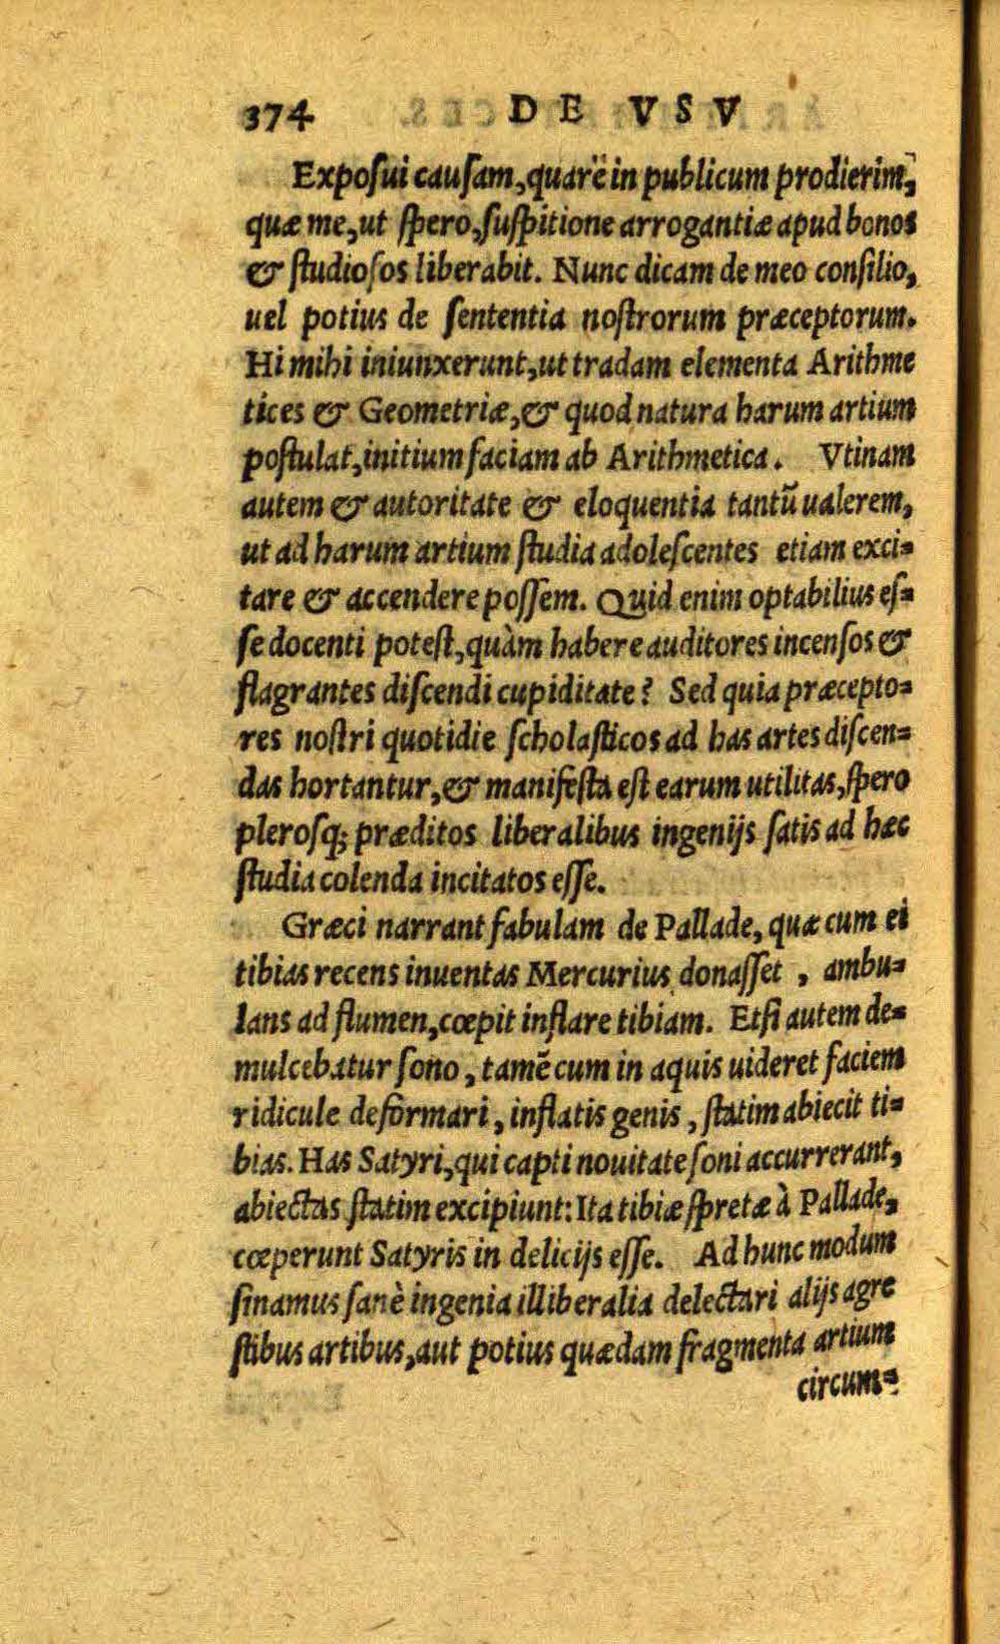 374 DE VSV
Exposui causam, quare in publicum prodierim,
quæ me, ut spero, suspitione arrogantiæ apud bonos
& studiosos liberabit. Nunc dicam de meo consilio,
uel potius de sententia nostrorum præceptorum.
Hi mihi iniunxerunt, ut tradam elementa Arithme
tices & Geometriæ, & quod natura harum artium
postulat, initium faciam ab Arithmetica. Vtinam
autem & autoritate & eloquentia tantũ ualerem,
ut ad harum artium studia adolescentes etiam exci-
tare & accendere possem. Quid enim optabilius es-
se docenti potest, quàm habere auditores incensos &
flagrantes discendi cupiditate? Sed quia præcepto-
res nostri quotidie scholasticos ad has artes discen-
das hortantur, & manifesta est earum utilitas, spero
plerosq; præditos liberalibus ingenijs satis ad hæc
studia colenda incitatos esse.
Græci narrant fabulam de Pallade, quæ cum ei
tibias recens inuentas Mercurius donasset, ambu-
lans ad flumen, cœpit inflare tibiam. Etsi autem de-
mulcebatur sono, tamẽ cum in aquis uideret faciem
ridicule deformari, inflatis genis, statim abiecit ti-
bias. Has Satyri, qui capti nouitate soni accurrerant,
abiectas statim excipiunt: Ita tibiæ spretæ à Pallade,
cœperunt Satyris in delicijs esse. Ad hunc modum
sinamus sanè ingenia illiberalia delectari alijs agre
stibus artibus, aut potius quædam fragmenta artium
circum-